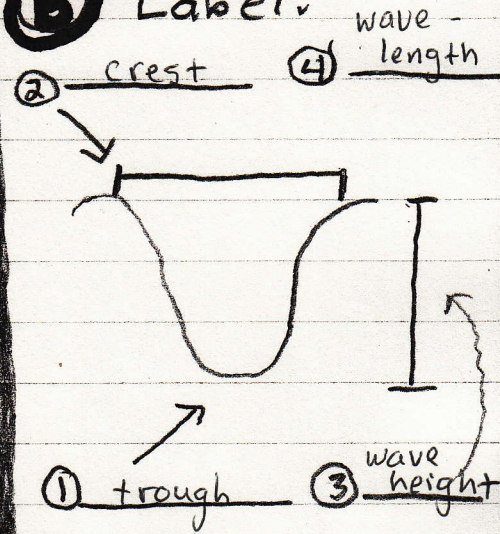 B Label:
2 crest
4 wave-
length
1 trough
3 wave
height